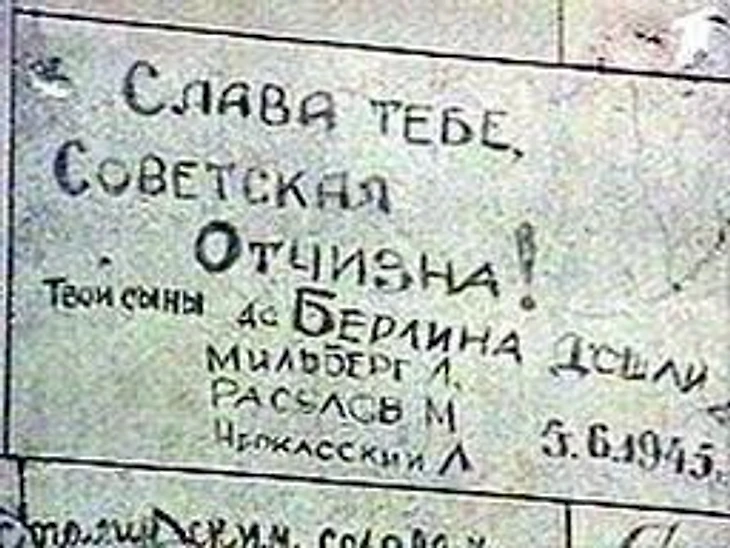 Слава тебе,
Советская
Отчизна!
Твои сыны до Берлина дошли
Мильберг Л.
Расулов М
Черкасский Л 5.6.1945.